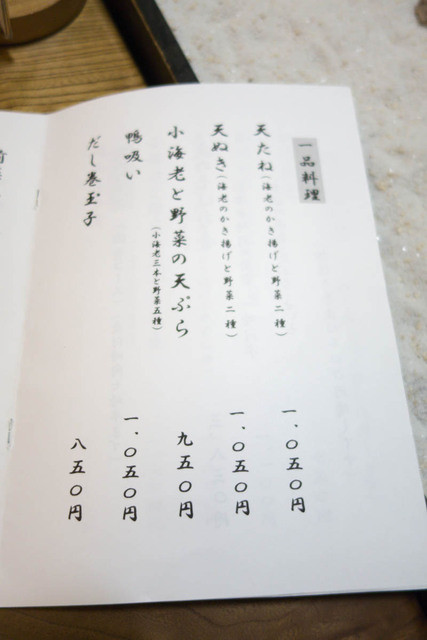 一品料理
天たね（海老のかき揚げと野菜二種）
一、〇五〇円
天ぬき（海老のかき揚げと野菜二種）
一、〇五〇円
小海老と野菜の天ぷら
（小海老三本と野菜五種）
九五〇円
鴨吸い
一、〇五〇円
だし巻玉子
八五〇円